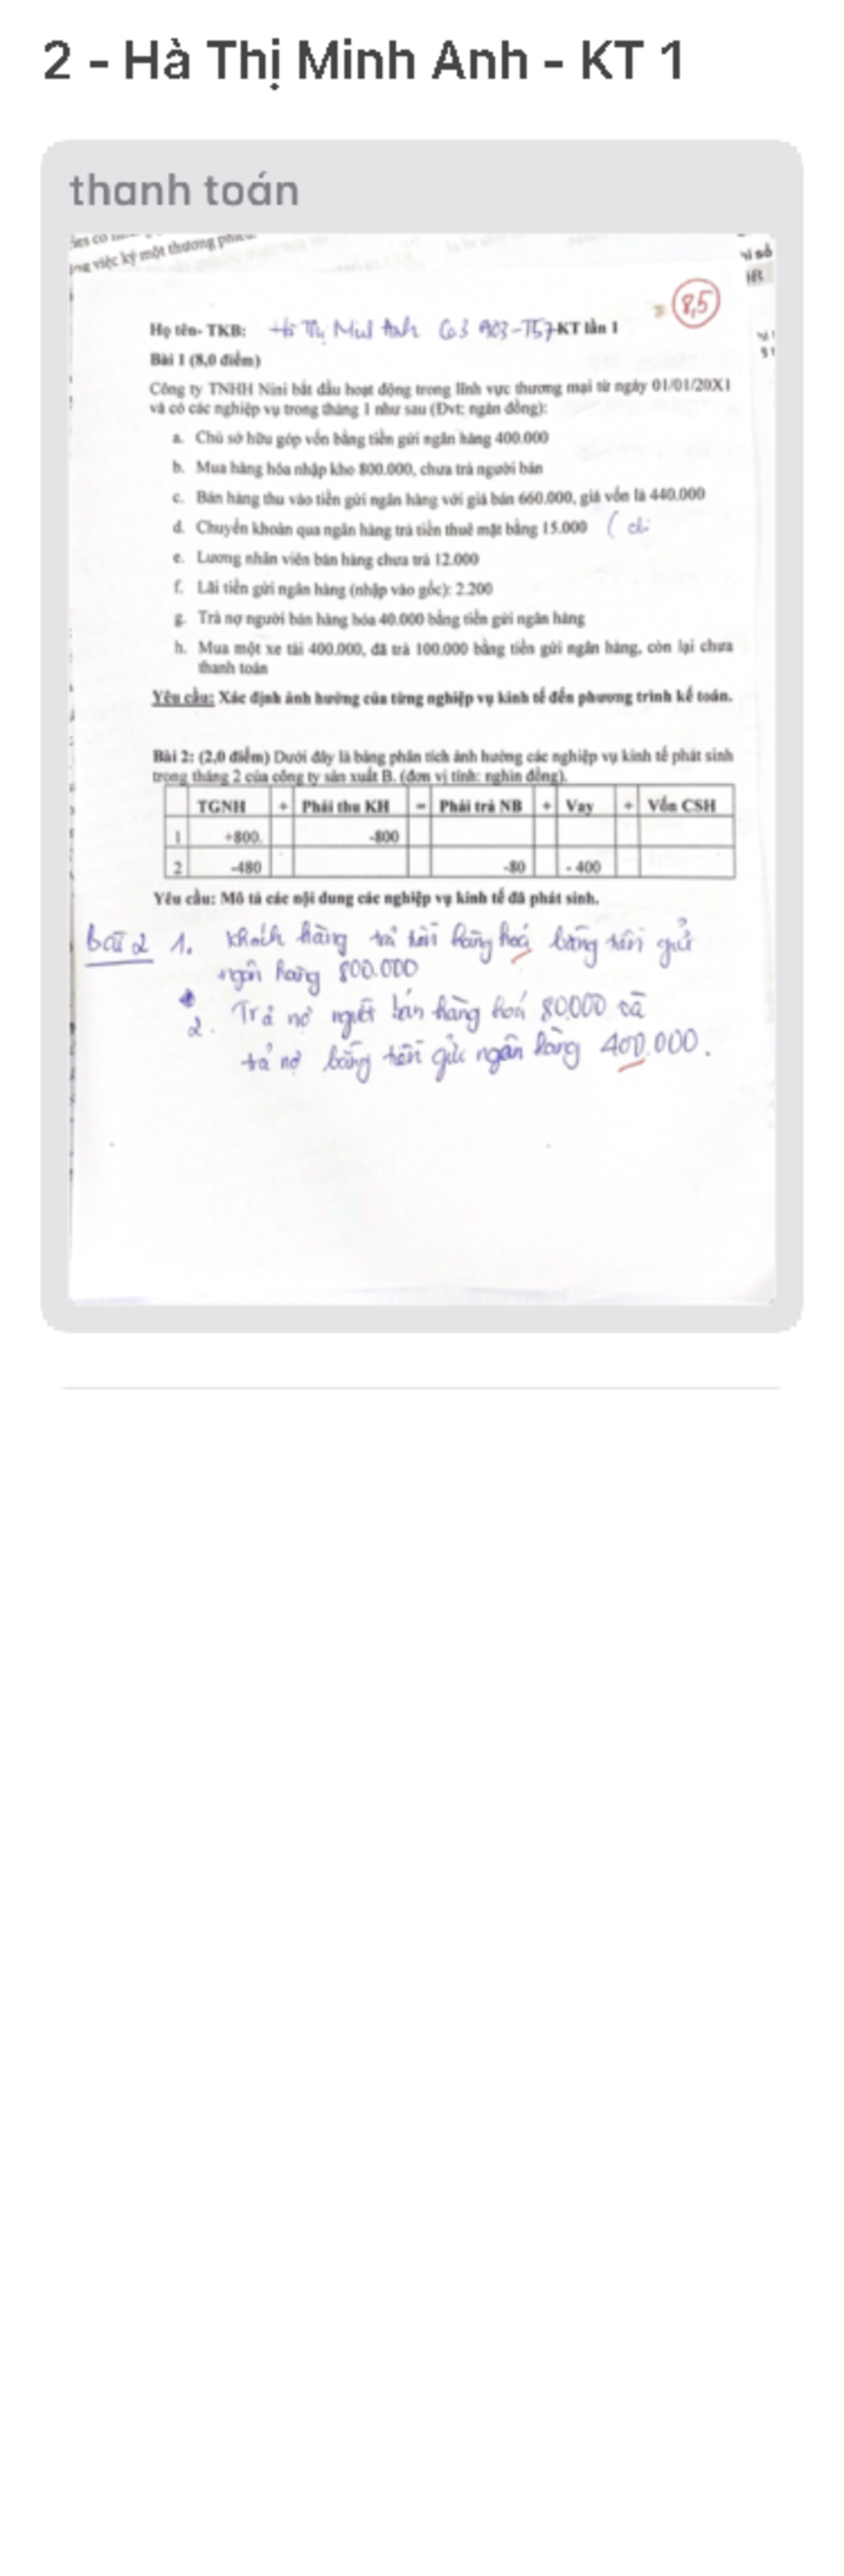 2 - Hà Thị Minh Anh - KT 1
thanh toán
ng việc ký một thương
8,5
Họ tên- TKB: Hà Thị Minh Anh Ca3 A03-T57 KT lần 1
Bài 1 (8,0 điểm)
Công ty TNHH Nini bắt đầu hoạt động trong lĩnh vực thương mại từ ngày 01/01/20X1
và có các nghiệp vụ trong tháng 1 như sau (Đvt: ngàn đồng):
a. Chủ sở hữu góp vốn bằng tiền gửi ngân hàng 400.000
b. Mua hàng hóa nhập kho 800.000, chưa trả người bán
c. Bán hàng thu vào tiền gửi ngân hàng với giá bán 660.000, giá vốn là 440.000
d. Chuyển khoản qua ngân hàng trả tiền thuê mặt bằng 15.000 ( chi
e. Lương nhân viên bán hàng chưa trả 12.000
f. Lãi tiền gửi ngân hàng (nhập vào gốc): 2.200
g. Trả nợ người bán hàng hóa 40.000 bằng tiền gửi ngân hàng
h. Mua một xe tải 400.000, đã trả 100.000 bằng tiền gửi ngân hàng, còn lại chưa
thanh toán
Yêu cầu: Xác định ảnh hưởng của từng nghiệp vụ kinh tế đến phương trình kế toán.
Bài 2: (2,0 điểm) Dưới đây là bảng phân tích ảnh hưởng các nghiệp vụ kinh tế phát sinh
trong tháng 2 của công ty sản xuất B. (đơn vị tính: nghìn đồng).
TGNH + Phải thu KH = Phải trả NB + Vay + Vốn CSH
1 +800. -800
2 -480 -80 - 400
Yêu cầu: Mô tả các nội dung các nghiệp vụ kinh tế đã phát sinh.
bài 2 1. Khách hàng trả tiền hàng hoá bằng tiền gửi
ngân hàng 800.000
2. Trả nợ người bán hàng hoá 80.000 và
trả nợ bằng tiền gửi ngân hàng 400.000.